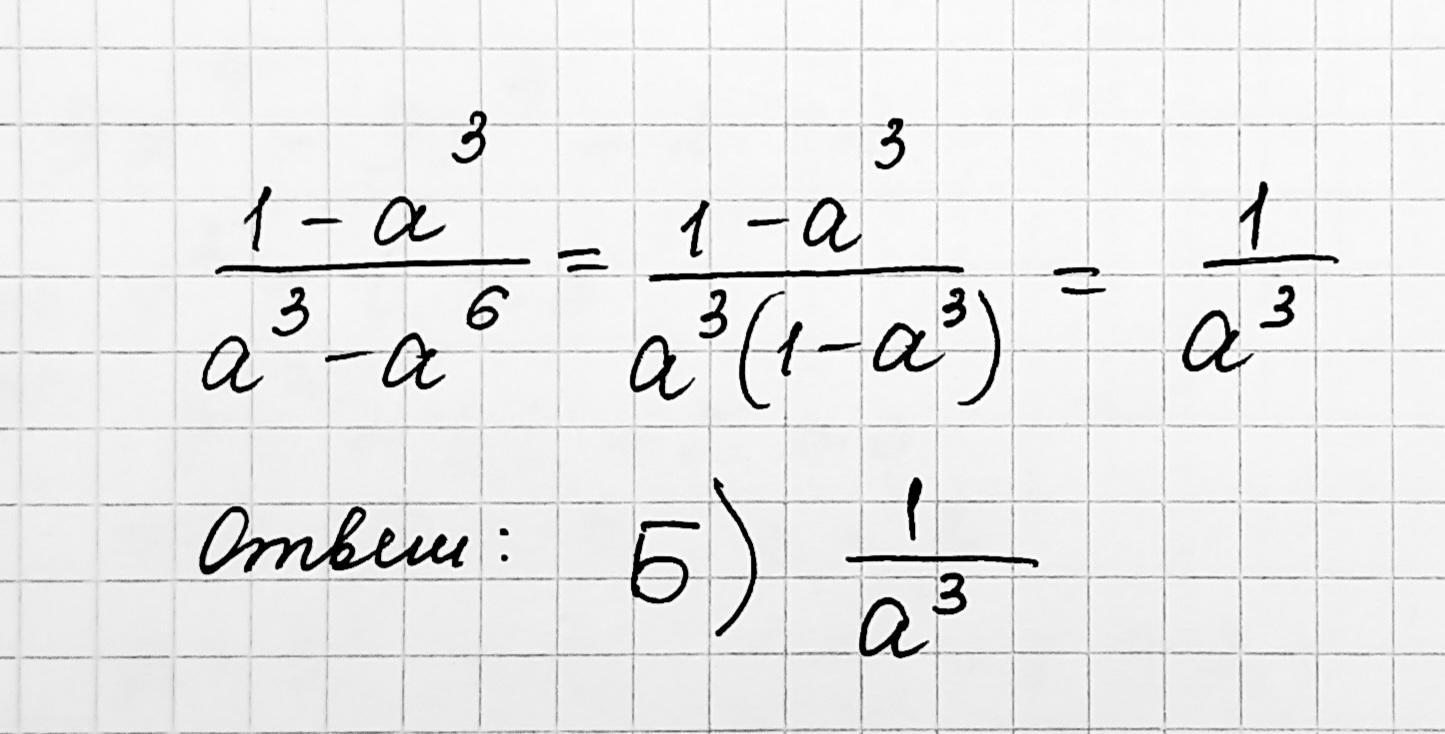 (1 - a³)/(a³ - a⁶) = (1 - a³)/(a³(1 - a³)) = 1/a³
Ответ: Б) 1/a³